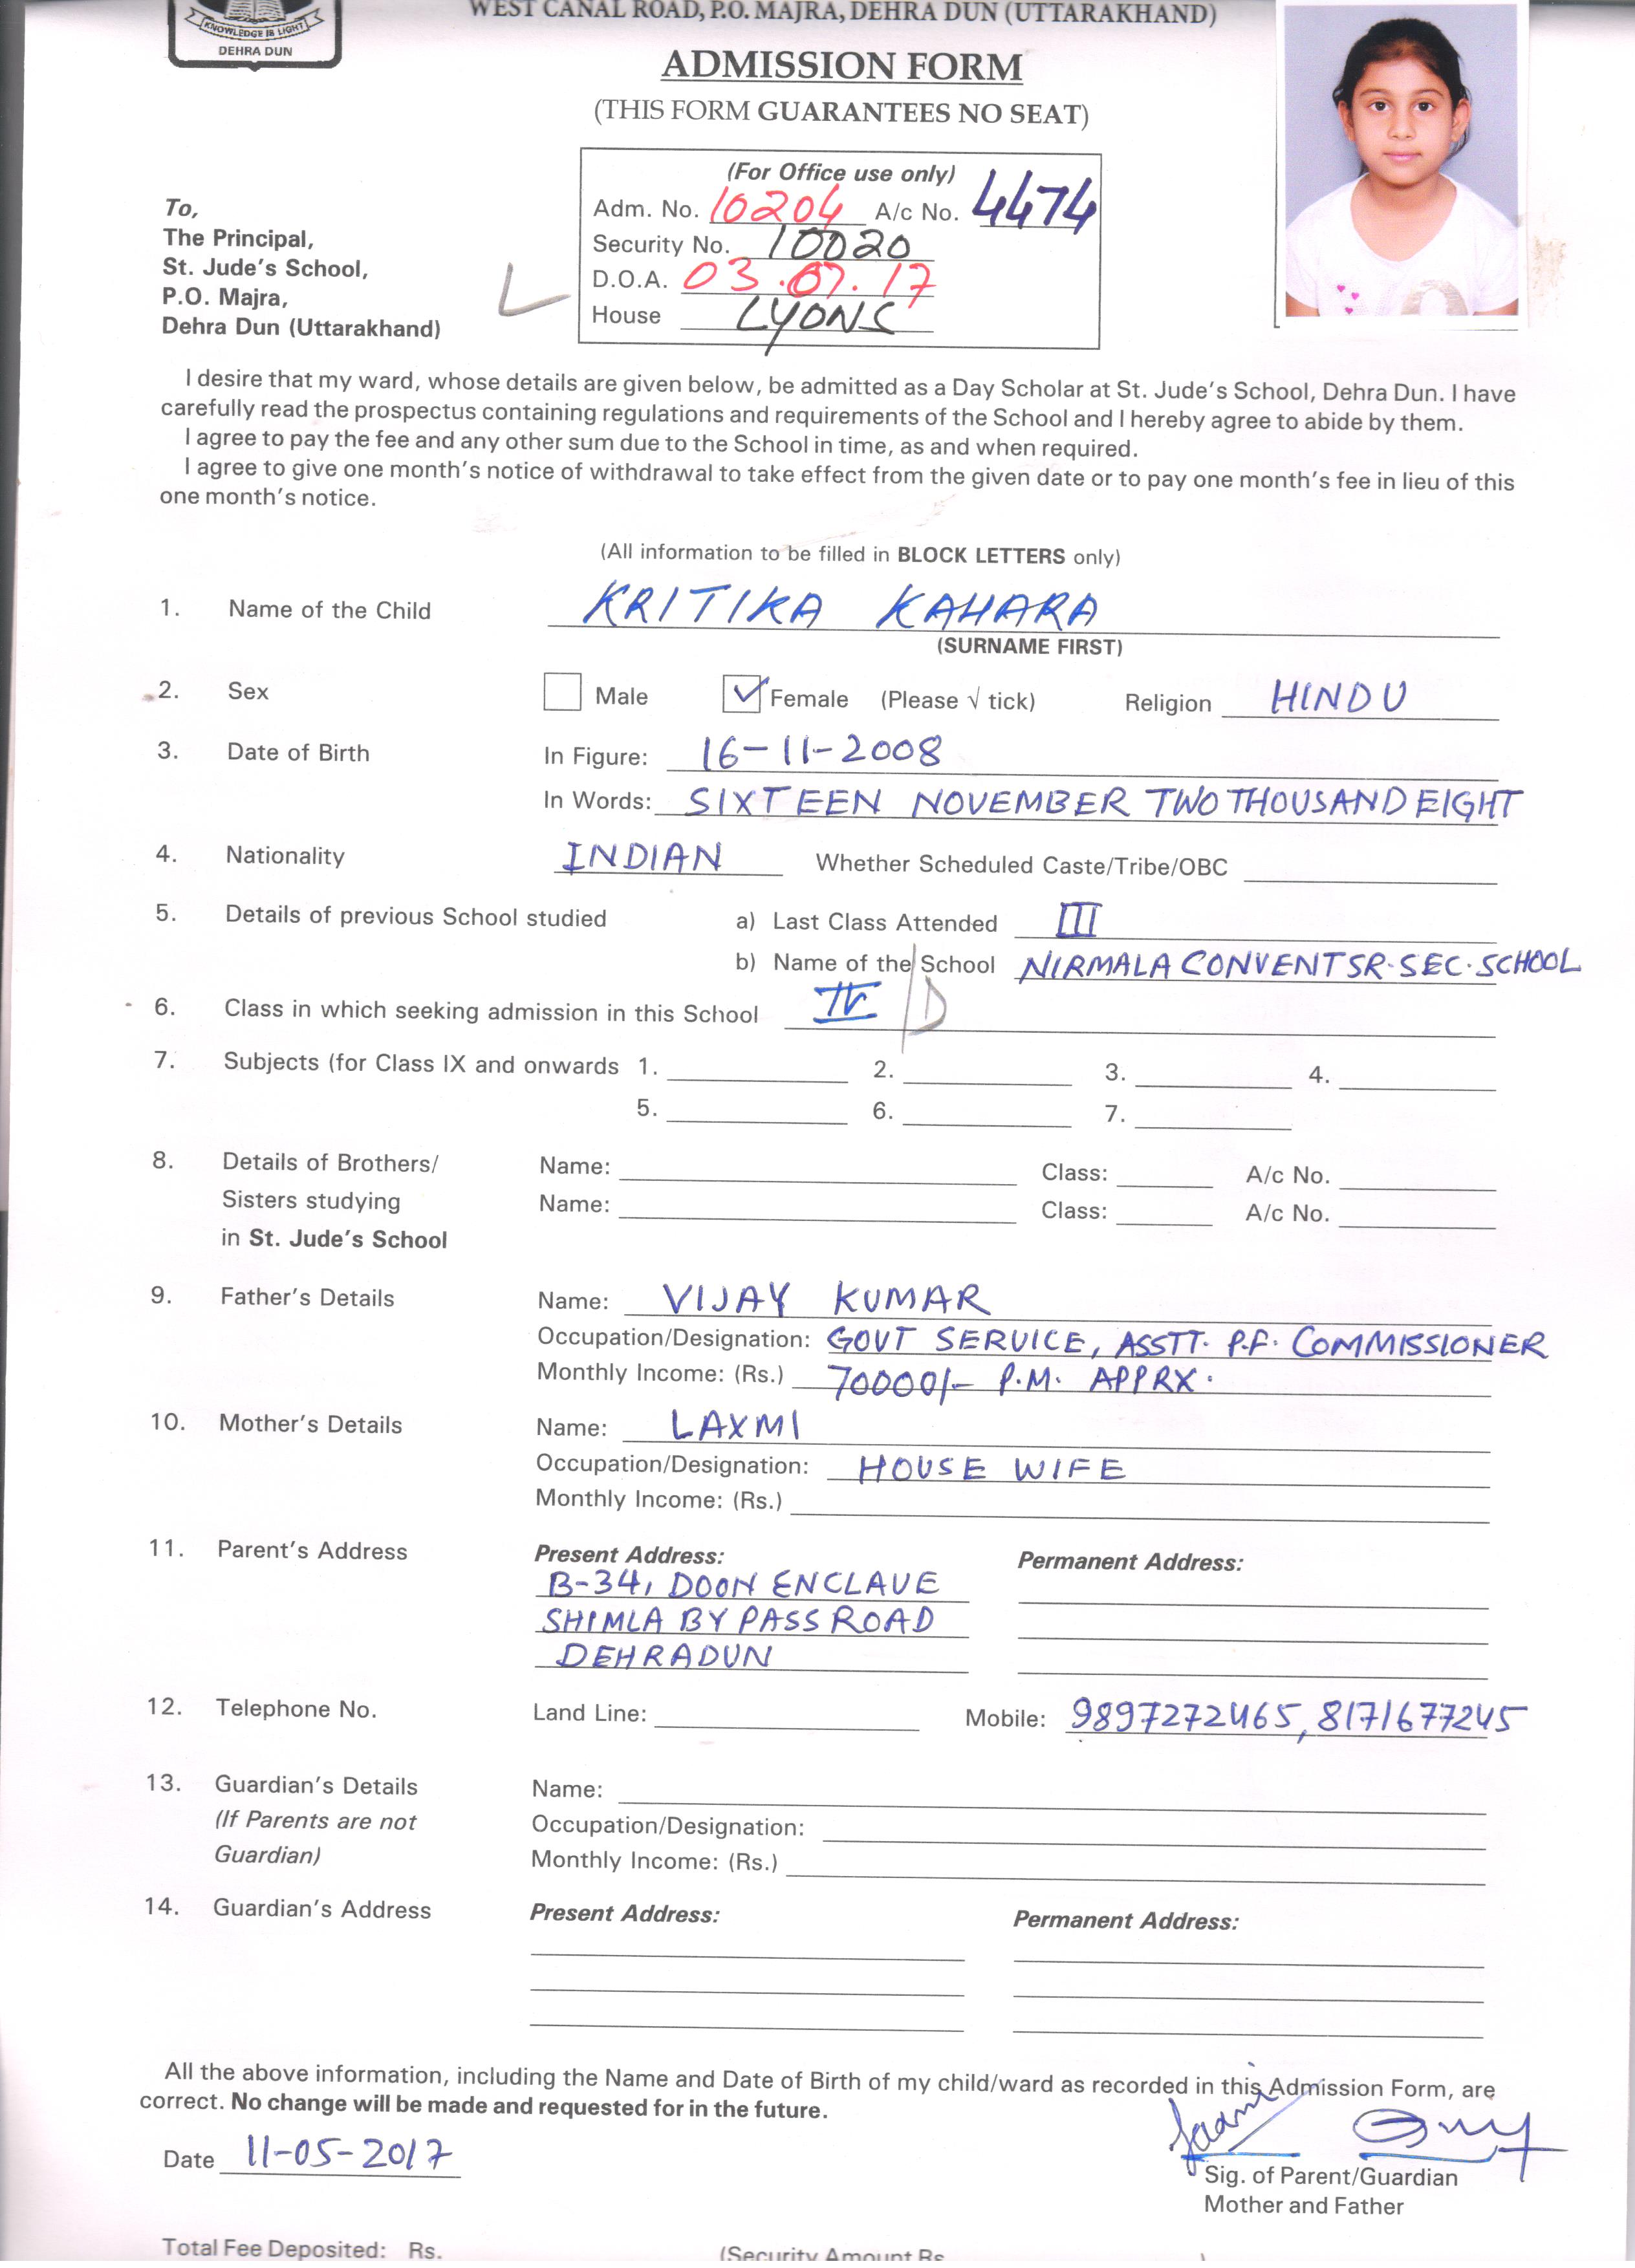 KNOWLEDGE IS LIGHT
DEHRA DUN
WEST CANAL ROAD, P.O. MAJRA, DEHRA DUN (UTTARAKHAND)
ADMISSION FORM
(THIS FORM GUARANTEES NO SEAT)
(For Office use only)
Adm. No. 10204 A/c No. 4474
Security No. 10020
D.O.A. 03.07.17
House LYONS
To,
The Principal,
St. Jude's School,
P.O. Majra,
Dehra Dun (Uttarakhand)
I desire that my ward, whose details are given below, be admitted as a Day Scholar at St. Jude's School, Dehra Dun. I have
carefully read the prospectus containing regulations and requirements of the School and I hereby agree to abide by them.
I agree to pay the fee and any other sum due to the School in time, as and when required.
I agree to give one month's notice of withdrawal to take effect from the given date or to pay one month's fee in lieu of this
one month's notice.
(All information to be filled in BLOCK LETTERS only)
1. Name of the Child KRITIKA KAHARA
(SURNAME FIRST)
2. Sex Male Female (Please √ tick) Religion HINDU
3. Date of Birth In Figure: 16-11-2008
In Words: SIXTEEN NOVEMBER TWO THOUSAND EIGHT
4. Nationality INDIAN Whether Scheduled Caste/Tribe/OBC
5. Details of previous School studied a) Last Class Attended III
b) Name of the School NIRMALA CONVENT SR. SEC. SCHOOL
6. Class in which seeking admission in this School IV /D
7. Subjects (for Class IX and onwards 1. 2. 3. 4.
5. 6. 7.
8. Details of Brothers/ Name: Class: A/c No.
Sisters studying Name: Class: A/c No.
in St. Jude's School
9. Father's Details Name: VIJAY KUMAR
Occupation/Designation: GOVT SERVICE, ASSTT. P.F. COMMISSIONER
Monthly Income: (Rs.) 70000/- P.M. APPRX.
10. Mother's Details Name: LAXMI
Occupation/Designation: HOUSE WIFE
Monthly Income: (Rs.)
11. Parent's Address Present Address: Permanent Address:
B-34, DOON ENCLAVE
SHIMLA BY PASS ROAD
DEHRADUN
12. Telephone No. Land Line: Mobile: 9897272465, 8171677245
13. Guardian's Details Name:
(If Parents are not Occupation/Designation:
Guardian) Monthly Income: (Rs.)
14. Guardian's Address Present Address: Permanent Address:
All the above information, including the Name and Date of Birth of my child/ward as recorded in this Admission Form, are
correct. No change will be made and requested for in the future.
Date 11-05-2017
Sig. of Parent/Guardian
Mother and Father
Total Fee Deposited: Rs. (Security Amount Rs. )